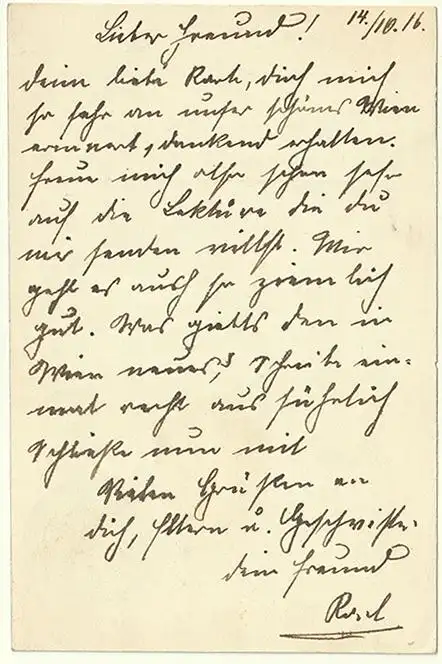 14./10.16.
Lieber Freund!
deine liebe Karte, dich mich
so sehr an unser schönes Wien
erinnert, dankend erhalten.
Freue mich also schon sehr
auf die Lektüre die du
mir senden willst. Mir
geht es auch so ziemlich
gut. Was giebts den in
Wien neues? Schreibe ein-
mal recht ausführlich
Schließe nun mit
Vielen Grüßen an
dich, Eltern u. Geschwister.
dein Freund